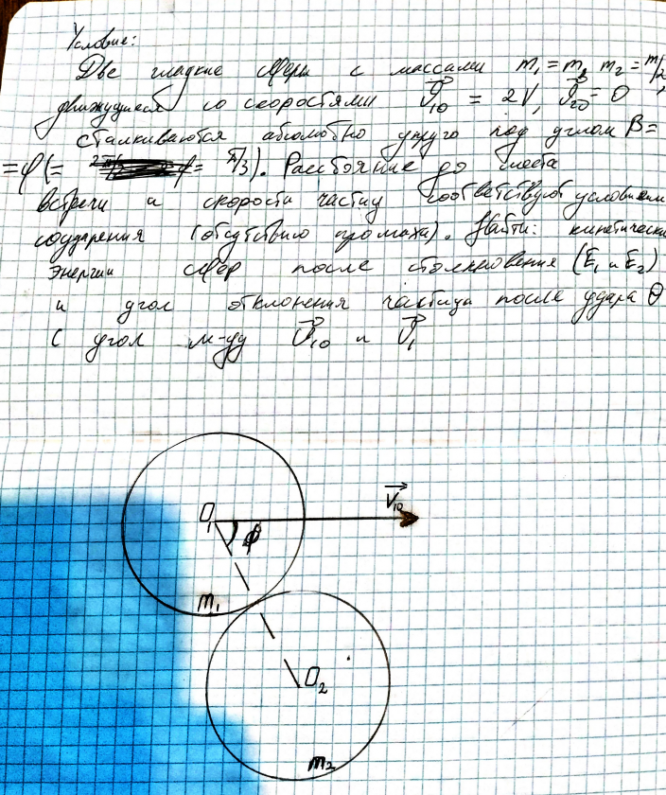 Условие:
Две гладкие сферы с массами m₁ = m, m₂ = m/2,
движущиеся со скоростями V⃗₁₀ = 2V, V⃗₂₀ = 0
сталкиваются абсолютно упруго под углом β =
= φ (= φ = π/3). Расстояние до места
встречи и скорости частиц соответствуют условиям
соударения (отсутствию промаха). Найти: кинетическ
энергии сфер после столкновения (E₁ и E₂)
и угол отклонения частицы после удара θ
( угол м-ду V⃗₁₀ и V⃗₁
V⃗₁₀
O₁
φ
m₁
O₂
m₂